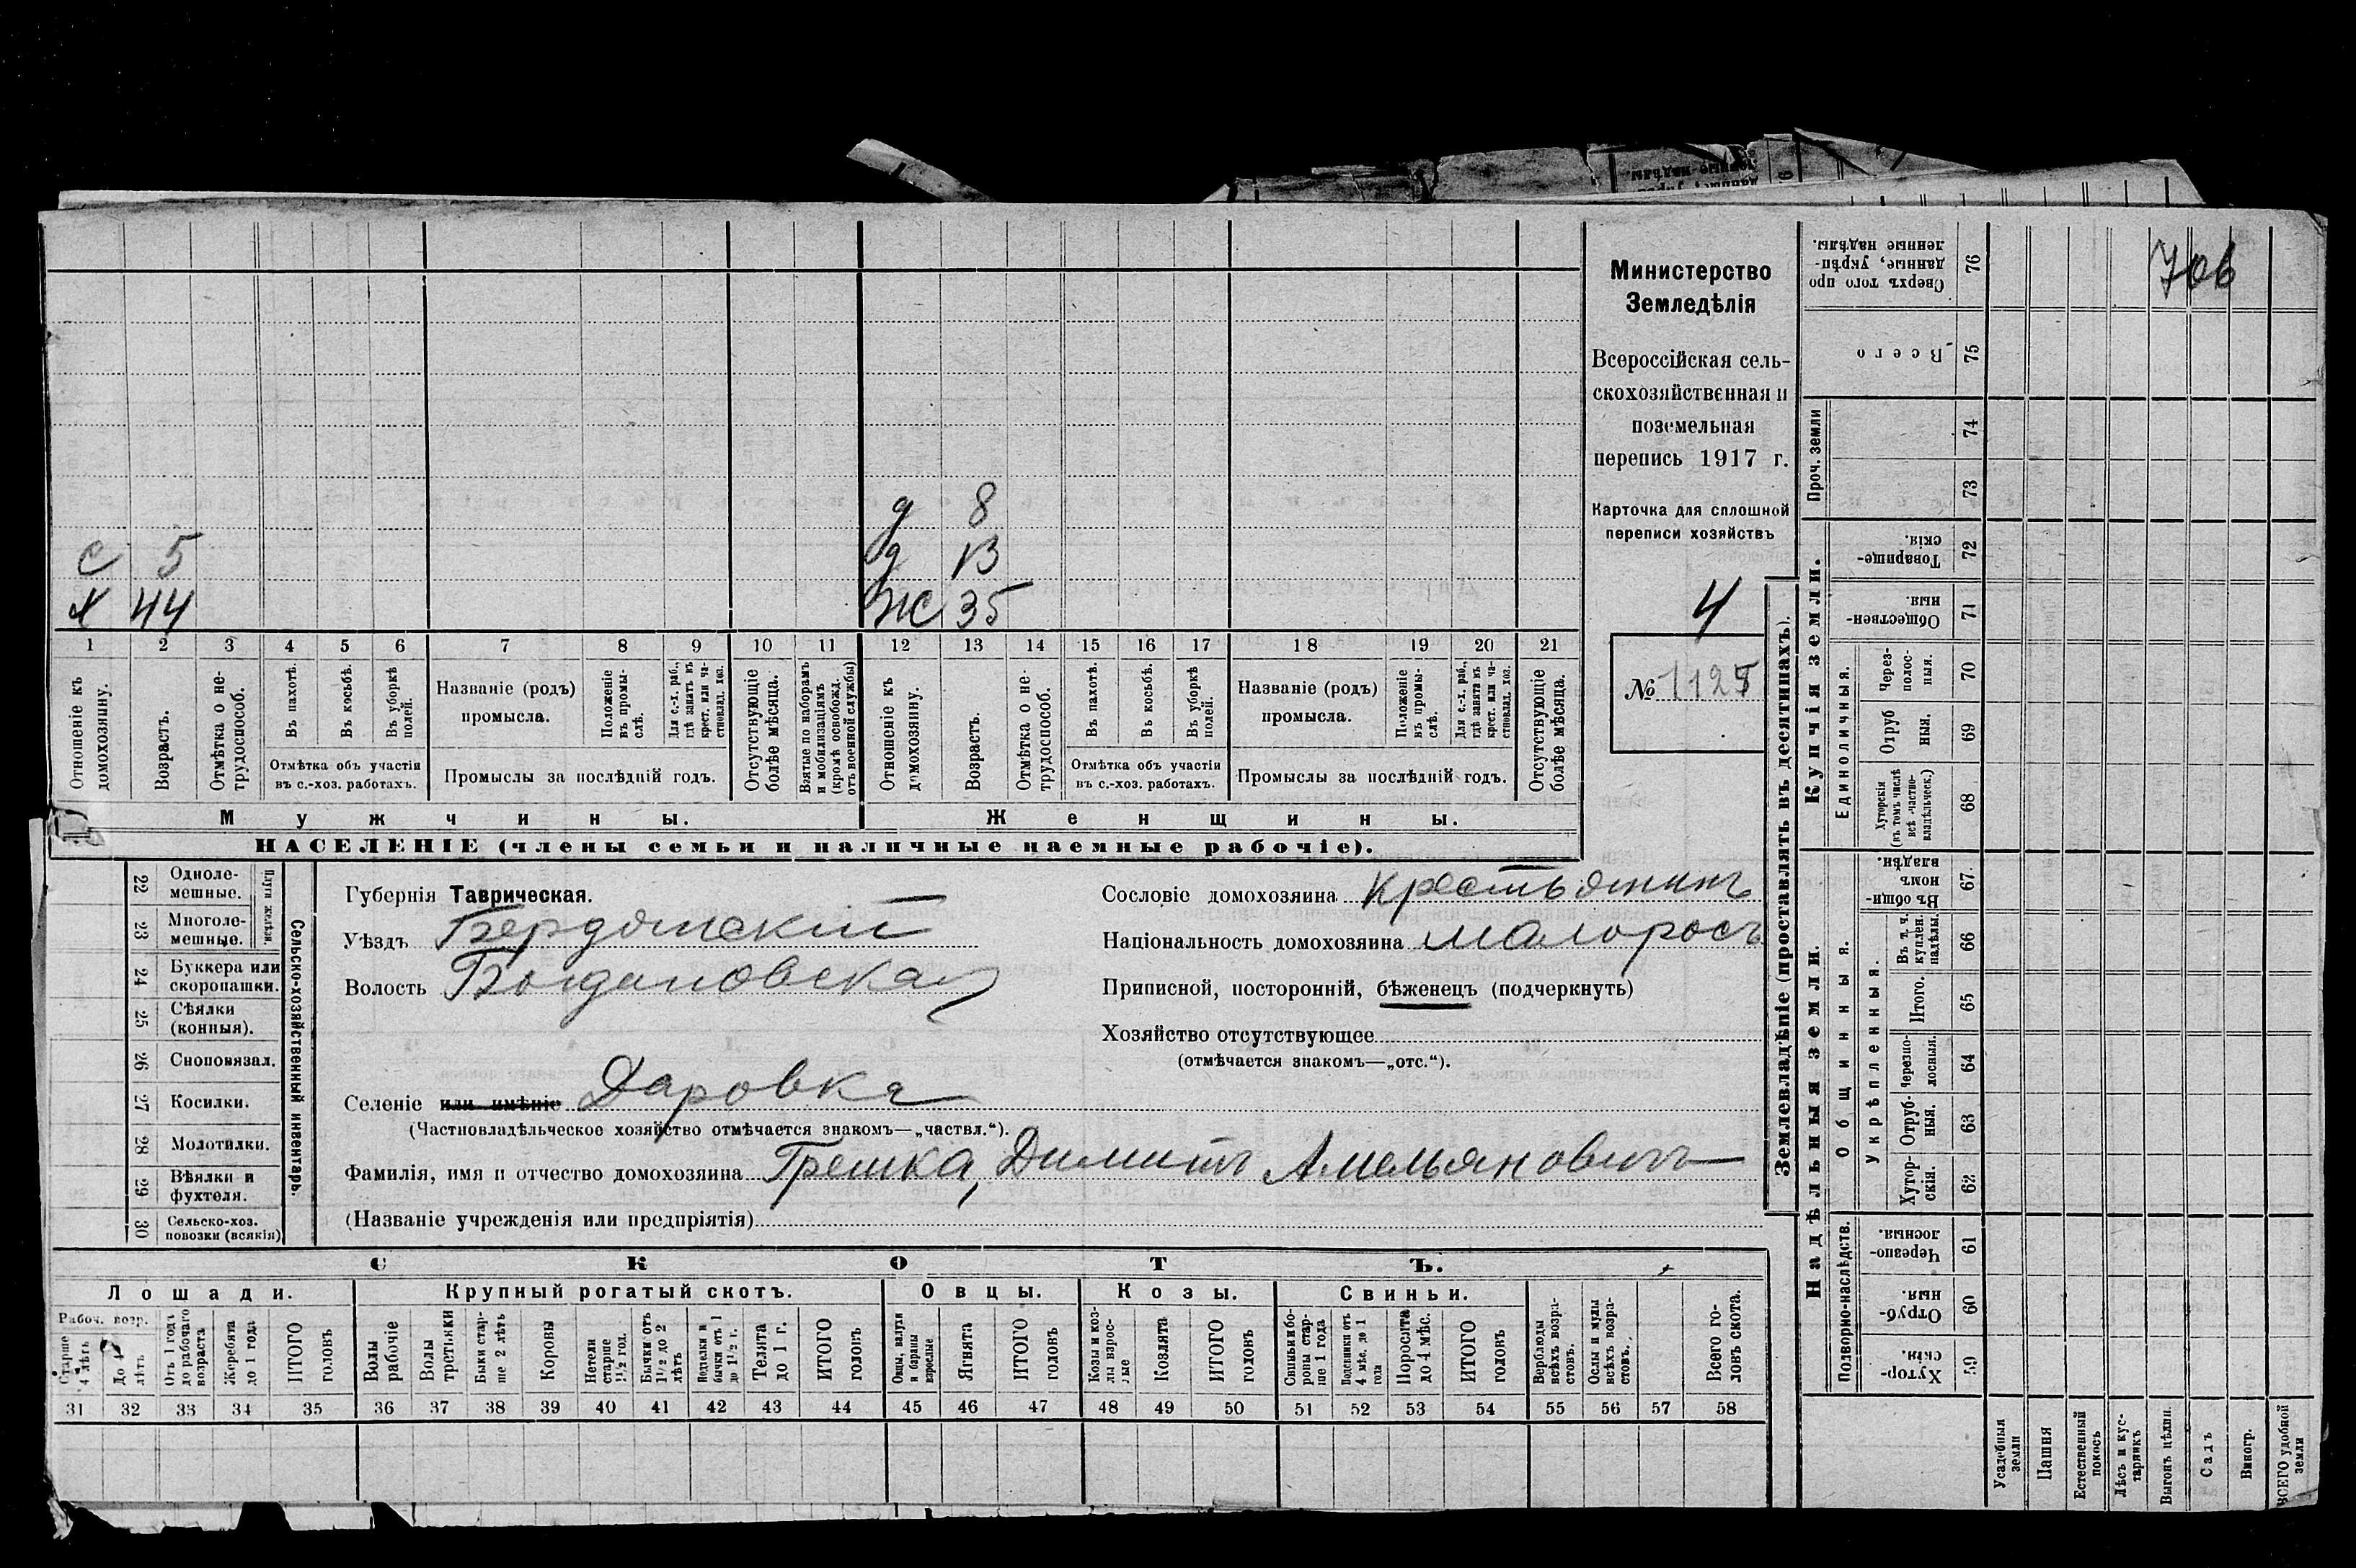 706
Министерство
Земледѣлія
Всероссійская сель-
скохозяйственная и
поземельная
перепись 1917 г.
Карточка для сплошной
переписи хозяйствъ
4
№ 1125
д 8
с 5 д 13
х 44 ж 35
1 2 3 4 5 6 7 8 9 10 11 12 13 14 15 16 17 18 19 20 21
Отношеніе къ домохозяину.
Возрастъ.
Отмѣтка о не-трудоспособ.
Въ пахотѣ.
Въ косьбѣ.
Въ уборкѣ полей.
Отмѣтка объ участіи
въ с.-хоз. работахъ.
Названіе (родъ)
промысла.
Положеніе въ промы-слѣ.
Для с.-х. раб., гдѣ занятъ въ крест. или ча-стновлад. хоз.
Промыслы за послѣдній годъ.
Отсутствующіе болѣе мѣсяца.
Взятые по наборамъ и мобилизаціямъ (кромѣ освобожд. отъ военной службы)
Отношеніе къ домохозяину.
Возрастъ.
Отмѣтка о не-трудоспособ.
Въ пахотѣ.
Въ косьбѣ.
Въ уборкѣ полей.
Отмѣтка объ участіи
въ с.-хоз. работахъ.
Названіе (родъ)
промысла.
Положеніе въ промы-слѣ.
Для с.-х. раб., гдѣ занята въ крест. или ча-стновлад. хоз.
Промыслы за послѣдній годъ.
Отсутствующіе болѣе мѣсяца.
Мужчины. Женщины.
НАСЕЛЕНІЕ (члены семьи и наличные наемные рабочіе).
Сельско-хозяйственный инвентарь.
22 Одноле-мешные.
23 Многоле-мешные.
24 Буккера или скоропашки.
25 Сѣялки (конныя).
26 Сноповязал.
27 Косилки.
28 Молотилки.
29 Вѣялки и фухтеля.
30 Сельско-хоз. повозки (всякія)
Губернія Таврическая.
Уѣздъ Бердянскій
Волость Богдановская
Селеніе или имѣніе Даровка
(Частновладѣльческое хозяйство отмѣчается знакомъ—„частвл.“).
Фамилія, имя и отчество домохозяина Грешка, Димитъ Амельяновичъ
(Названіе учрежденія или предпріятія)
Сословіе домохозяина Крестьянинъ
Національность домохозяина малоросъ
Приписной, посторонній, бѣженецъ (подчеркнуть)
Хозяйство отсутствующее
(отмѣчается знакомъ—„отс.“).
СКОТЪ.
Лошади. Крупный рогатый скотъ. Овцы. Козы. Свиньи.
Рабоч. возр.
Старше 4 лѣтъ
До 4 лѣтъ
Отъ 1 года до рабочаго возраста
Жеребята до 1 года
ИТОГО головъ
Волы рабочіе
Волы третьяки
Быки стар-ше 2 лѣтъ
Коровы
Нетели старше 1½ год.
Бычки отъ 1½ до 2 лѣтъ
Подтелки и бычки отъ 1 до 1½ г.
Телята до 1 г.
ИТОГО головъ
Овцы, валухи и бараны взрослые
Ягнята
ИТОГО головъ
Козы и коз-лы взрос-лые
Козлята
ИТОГО головъ
Свиньи и бо-ровы стар-ше 1 года
Подсвинки отъ 4 мѣс. до 1 года
Поросята до 4 мѣс.
ИТОГО головъ
Верблюды всѣхъ возра-стовъ.
Ослы и мулы всѣхъ возра-стовъ.
Всего го-ловъ скота.
31 32 33 34 35 36 37 38 39 40 41 42 43 44 45 46 47 48 49 50 51 52 53 54 55 56 57 58
Землевладѣніе (проставлять въ десятинахъ).
Купчія земли.
Надѣльныя земли.
Проч. земли
Единоличныя.
Общинныя.
Укрѣпленныя.
Подворно-наслѣдств.
76 Сверхъ того про даныя, укрѣп-ленные надѣлы.
75 Всего
74
73
72 Товарище-скія.
71 Обществен-ныя.
70 Через-полос-ныя.
69 Отруб ныя.
68 Хуторскія (въ томъ числѣ всѣ частно-владѣльческ.)
67 Въ общин-номъ владѣн.
66 Въ т. ч. куплен. надѣлы.
65 Итого.
64 Черезпо-лосныя.
63 Отруб-ныя.
62 Хутор-скія.
61 Черезпо-лосныя.
60 Отруб-ныя.
59 Хутор-скія.
Усадебныя земли
Пашня
Естественный покосъ
Лѣсъ и кус-тарникъ
Выгонъ цѣлин.
Садъ
Виногр.
ВСЕГО удобной земли